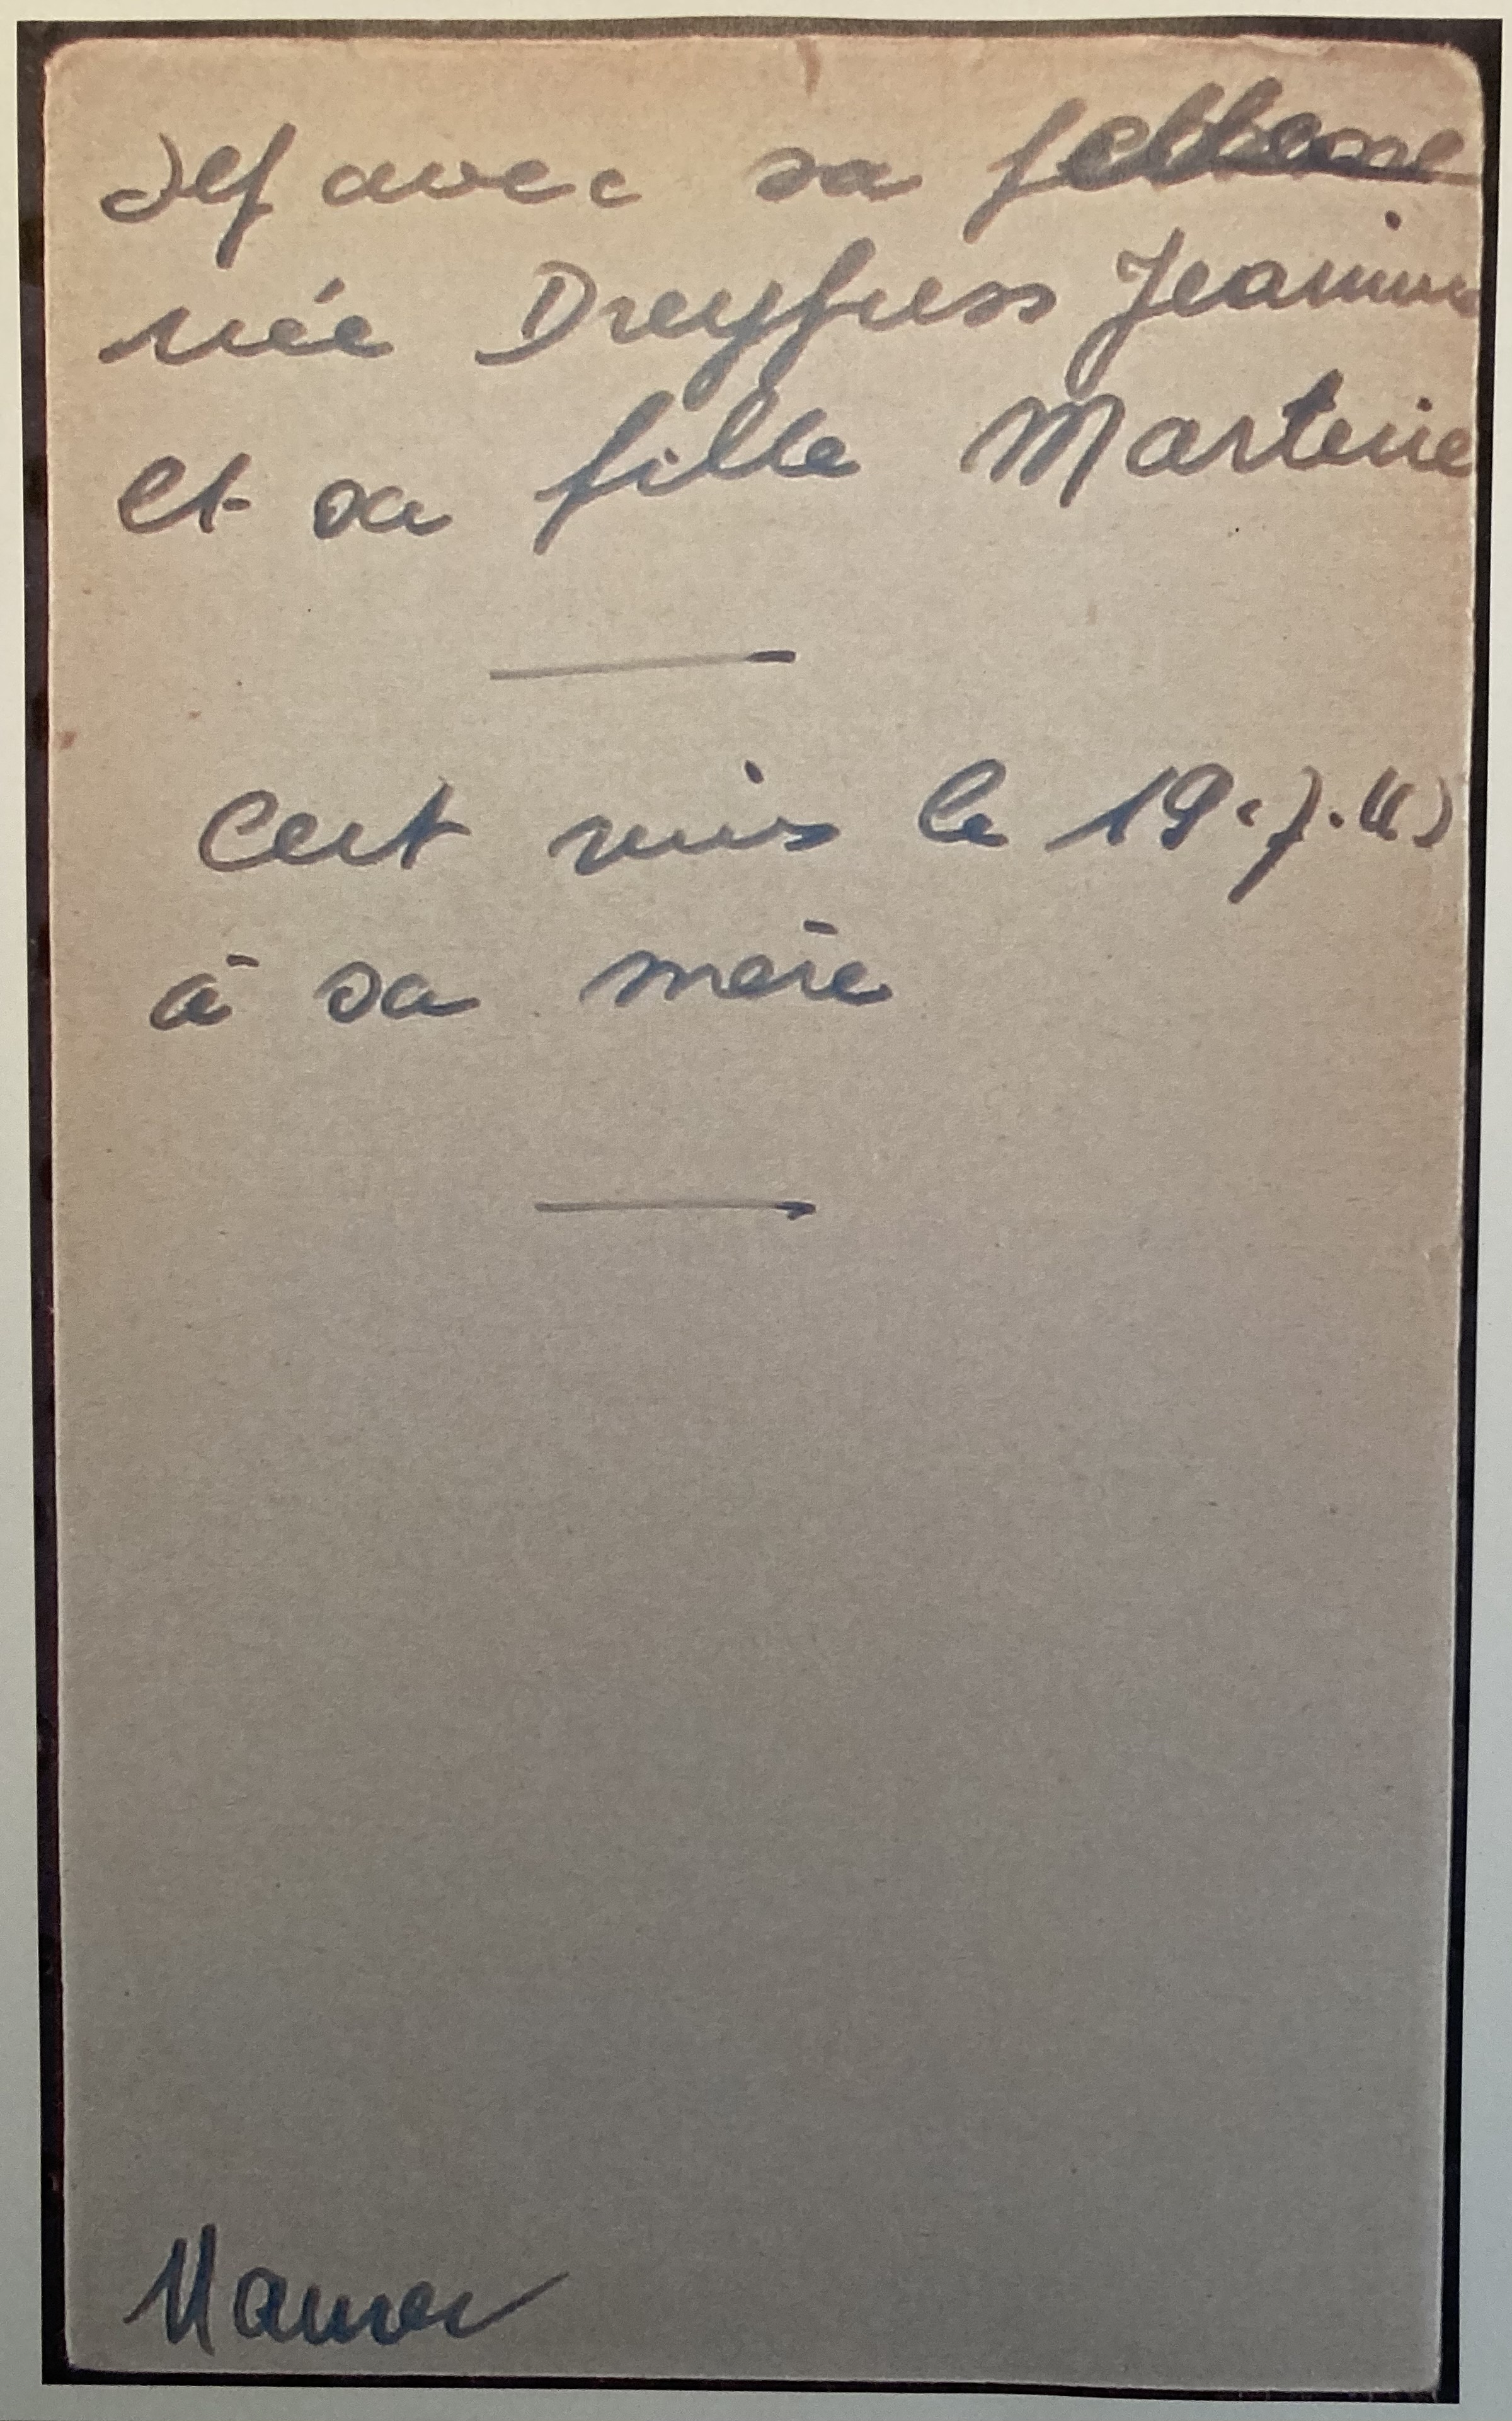 Def avec sa femme
née Dreyfuss Jeanine
et sa fille Martine
Cert mis le 19.7.45
à sa mère